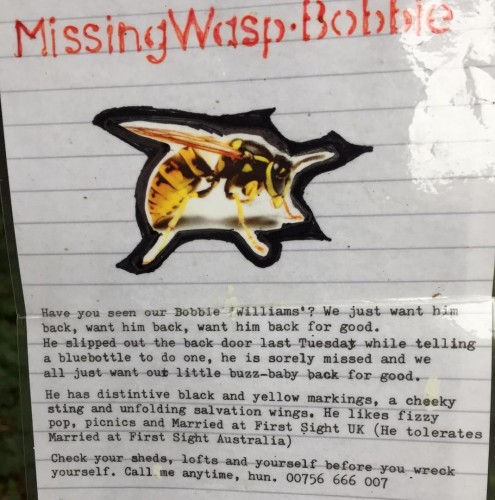 Missing Wasp·Bobbie
Have you seen our Bobbie 'Williams'? We just want him
back, want him back, want him back for good.
He slipped out the back door last Tuesday while telling
a bluebottle to do one, he is sorely missed and we
all just want out little buzz-baby back for good.
He has distintive black and yellow markings, a cheeky
sting and unfolding salvation wings. He likes fizzy
pop, picnics and Married at First Sight UK (He tolerates
Married at First Sight Australia)
Check your sheds, lofts and yourself before you wreck
yourself. Call me anytime, hun. 00756 666 007